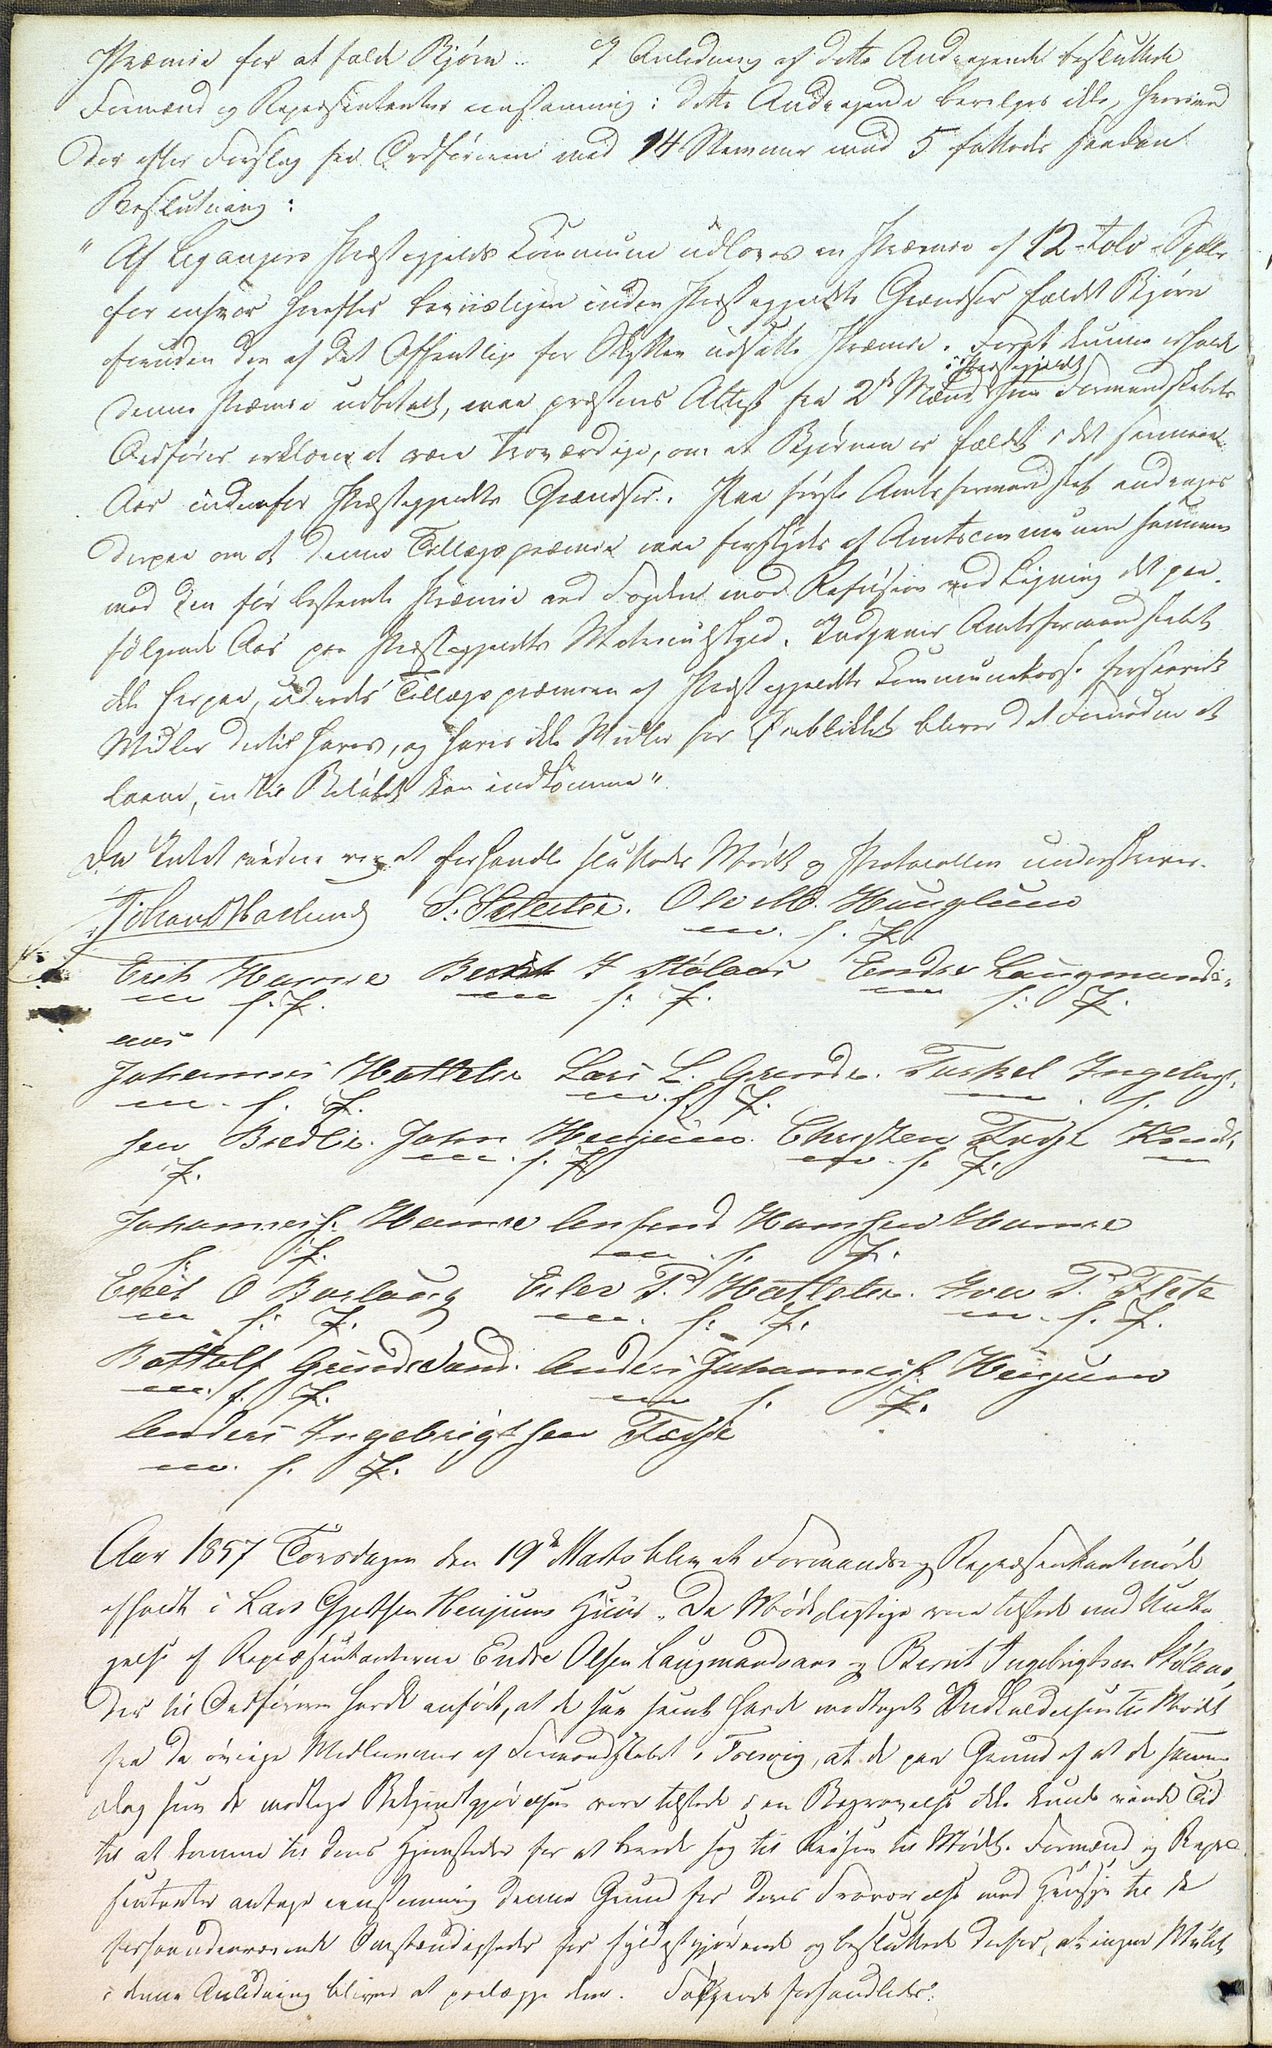 Præmie for at fælde Bjørn. I Anledning af dette Andragende besluttede
Formænd og Repræsentanter eenstemmig: dette Andragende bevilges ikke, hvorimod
der efter Forslag fra Ordføreren med 14 Stemmer mod 5 fattedes saadan
Beslutning:
"Af Leganger Præstegjelds Commune udloves en Præmie af 12 - tolv - Spdlr
for enhver herefter beviisligen inden Præstegjeldets Grændser fældet Bjørn
foruden den af det Offentlige for Skytten udsatte Præmie. For at kunne erholde
denne Præmie udbetalt, maa præsteres Attest fra 2de Mænd i Præstegjeldet som Formandskabets
Ordfører erklærer at være troværdige, om at Bjørnen er fældet i det samme
Aar indenfor Præstegjeldets Grændser. Paa første Amtsformandskab andrages
derpaa om at denne Tillægspræmie maa forskydes af Amtscommunen sammen
med den før bestemte Præmie ved Fogden mod Refusion ved Ligning det paa-
følgende Aar paa Præstegjeldets Matriculskyld. Indgaaer Amtsformandskabet
ikke herpaa, udredes Tillægspræmien af Præstegjeldets Communekasse forsaavidt
Midler dertil haves, og haves ikke Midler for Øieblikket bliver det Fornødne at
laane, indtil Beløbet kan indkomme".
Da Intet videre var at forhandle sluttedes Mødet og Protocollen underskreven.
Johan Haslund S: Sætetie. Ole M. Hauglum
m. f. P.
Erik Hamre Bernt I Stølaas Endre Laugmands-
m f. P. m f. P. m f. P.
aas
Johannes Hatteler Lars L. Grinde. Torkel Ingebrigt-
m. f. P. m. f. P. m. f.
sen Bredlie. John Henjum. Christen Tryse Knud
P. m. f. P. m. f. P. m
Johannes. Hamre Amund Hansen Hamre
f. P. m f. P.
Eriet O Borlaug Erler P. Hatteler. Iver P. Flete
m f. P. m. f. P. m. f. P.
Bottolf Grindesand. Anders Johannes. Henjum
m. f. P. m f. P.
Anders Ingebrigtsen Tryse
m. f. P.
Aar 1857 Torsdagen den 19de Marts blev et Formands og Repræsentantmøde
afholdt i Lars Gjertsen Henjums Huus. De Mødepligtige vare tilstede med Undta-
gelse af Repræsentanterne Endre Olsen Laugmandsaas og Bernt Ingebrigtsen Stølaas,
der til Ordføreren havde anført, at de saa seent havde modtaget Indkaldelsen til Mødet
fra de øvrige Medlemmer af Formandskabet i Fresvig, at de paa Grund af at de samme
Dag som de modtoge Bekjendtgjørelsen vare tilstede i en Begravelse ikke kunde vinde Tid
til at komme til deres Hjemsteder for at berede sig til Reisen til Mødet. Formænd og Repræ-
sentanter antoge eenstemmig denne Grund for deres Fraværelse med Hensyn til de
forhaandenværende Omstændigheder for fyldestgjørende og besluttede derfor, at ingen Mulct
i denne Anledning bliver at paalægge dem. Følgende forhandledes: